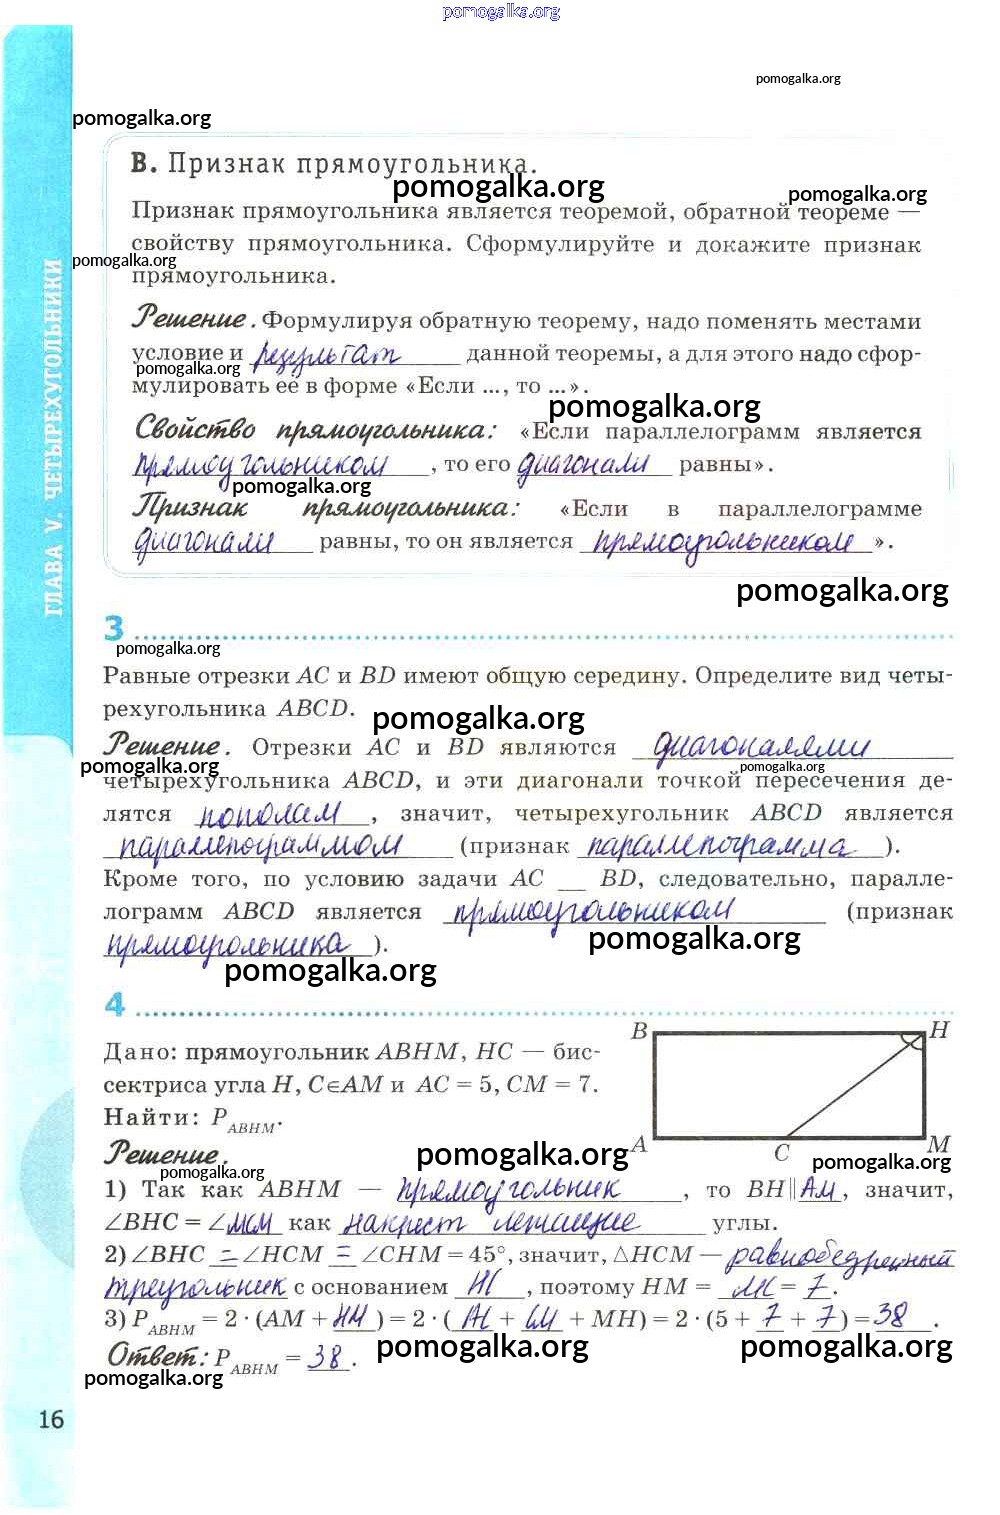 pomogalka.org
pomogalka.org
pomogalka.org
В. Признак прямоугольника.
pomogalka.org
pomogalka.org
Признак прямоугольника является теоремой, обратной теореме —
свойству прямоугольника. Сформулируйте и докажите признак
pomogalka.org
прямоугольника.
Решение. Формулируя обратную теорему, надо поменять местами
условие и результат данной теоремы, а для этого надо сфор-
pomogalka.org
мулировать её в форме «Если ..., то ...».
pomogalka.org
Свойство прямоугольника: «Если параллелограмм является
прямоугольником, то его диагонали равны».
pomogalka.org
Признак прямоугольника: «Если в параллелограмме
диагонали равны, то он является прямоугольником».
pomogalka.org
ГЛАВА V. ЧЕТЫРЕХУГОЛЬНИКИ
3
pomogalka.org
Равные отрезки AC и BD имеют общую середину. Определите вид четы-
рехугольника ABCD.
pomogalka.org
Решение. Отрезки AC и BD являются диагоналями
pomogalka.org
pomogalka.org
четырехугольника ABCD, и эти диагонали точкой пересечения де-
лятся пополам, значит, четырехугольник ABCD является
параллелограммом (признак параллелограмма).
Кроме того, по условию задачи AC __ BD, следовательно, паралле-
лограмм ABCD является прямоугольником (признак
прямоугольника).
pomogalka.org
pomogalka.org
4
Дано: прямоугольник ABHM, HC — бис-
сектриса угла H, C∈AM и AC = 5, CM = 7.
Найти: P_ABHM.
B
H
A
C
M
Решение.
pomogalka.org
pomogalka.org
pomogalka.org
1) Так как ABHM — прямоугольник, то BH∥АМ, значит,
∠BHC = ∠МСМ как накрест лежащие углы.
2) ∠BHC = ∠HCM = ∠CHM = 45°, значит, △HCM — равнобедренный
треугольник с основанием НС, поэтому HM = МС = 7.
3) P_ABHM = 2 · (AM + НМ) = 2 · (АС + СМ + MH) = 2 · (5 + 7 + 7) = 38.
Ответ: P_ABHM = 38.
pomogalka.org
pomogalka.org
pomogalka.org
16